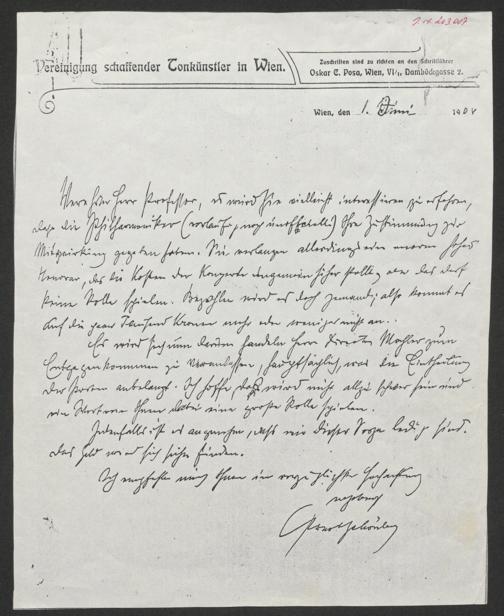 Vereinigung schaffender Tonkünstler in Wien.
Zuschriften sind zu richten an den Schriftführer
Oskar C. Posa, Wien, VI/1, Dambödgasse 2.
Wien, den 1. Juni 1904
Verehrter Herr Professor, es wird Sie vielleicht interessieren zu erfahren,
dass die Philharmoniker (vorläufig noch inoffiziell) Ihre Zustimmung zur
Mitwirkung gegeben haben. Sie verlangen allerdings einen enorm hohen
Honorar, das die Kosten der Konzerte ungemein höher stellt, aber das darf
keine Rolle spielen. Bezahlen wird es doch jemand; also kommt es
auf die paar Tausend Kronen mehr oder weniger nicht an.
Es wird sich nun darum handeln Herrn Direktor Mahler zum
Entgegenkommen zu veranlassen, hauptsächlich, was die Einteilung
der Proben anbelangt. Ich hoffe, das wird nicht allzu schwer sein und
eine große Rolle spielen.
Jedenfalls ist es angenehm, dass wir dieser Sorge ledig sind.
Das Geld wird sich schon finden.
Ich empfehle mich Ihnen in vorzüglichster Hochachtung